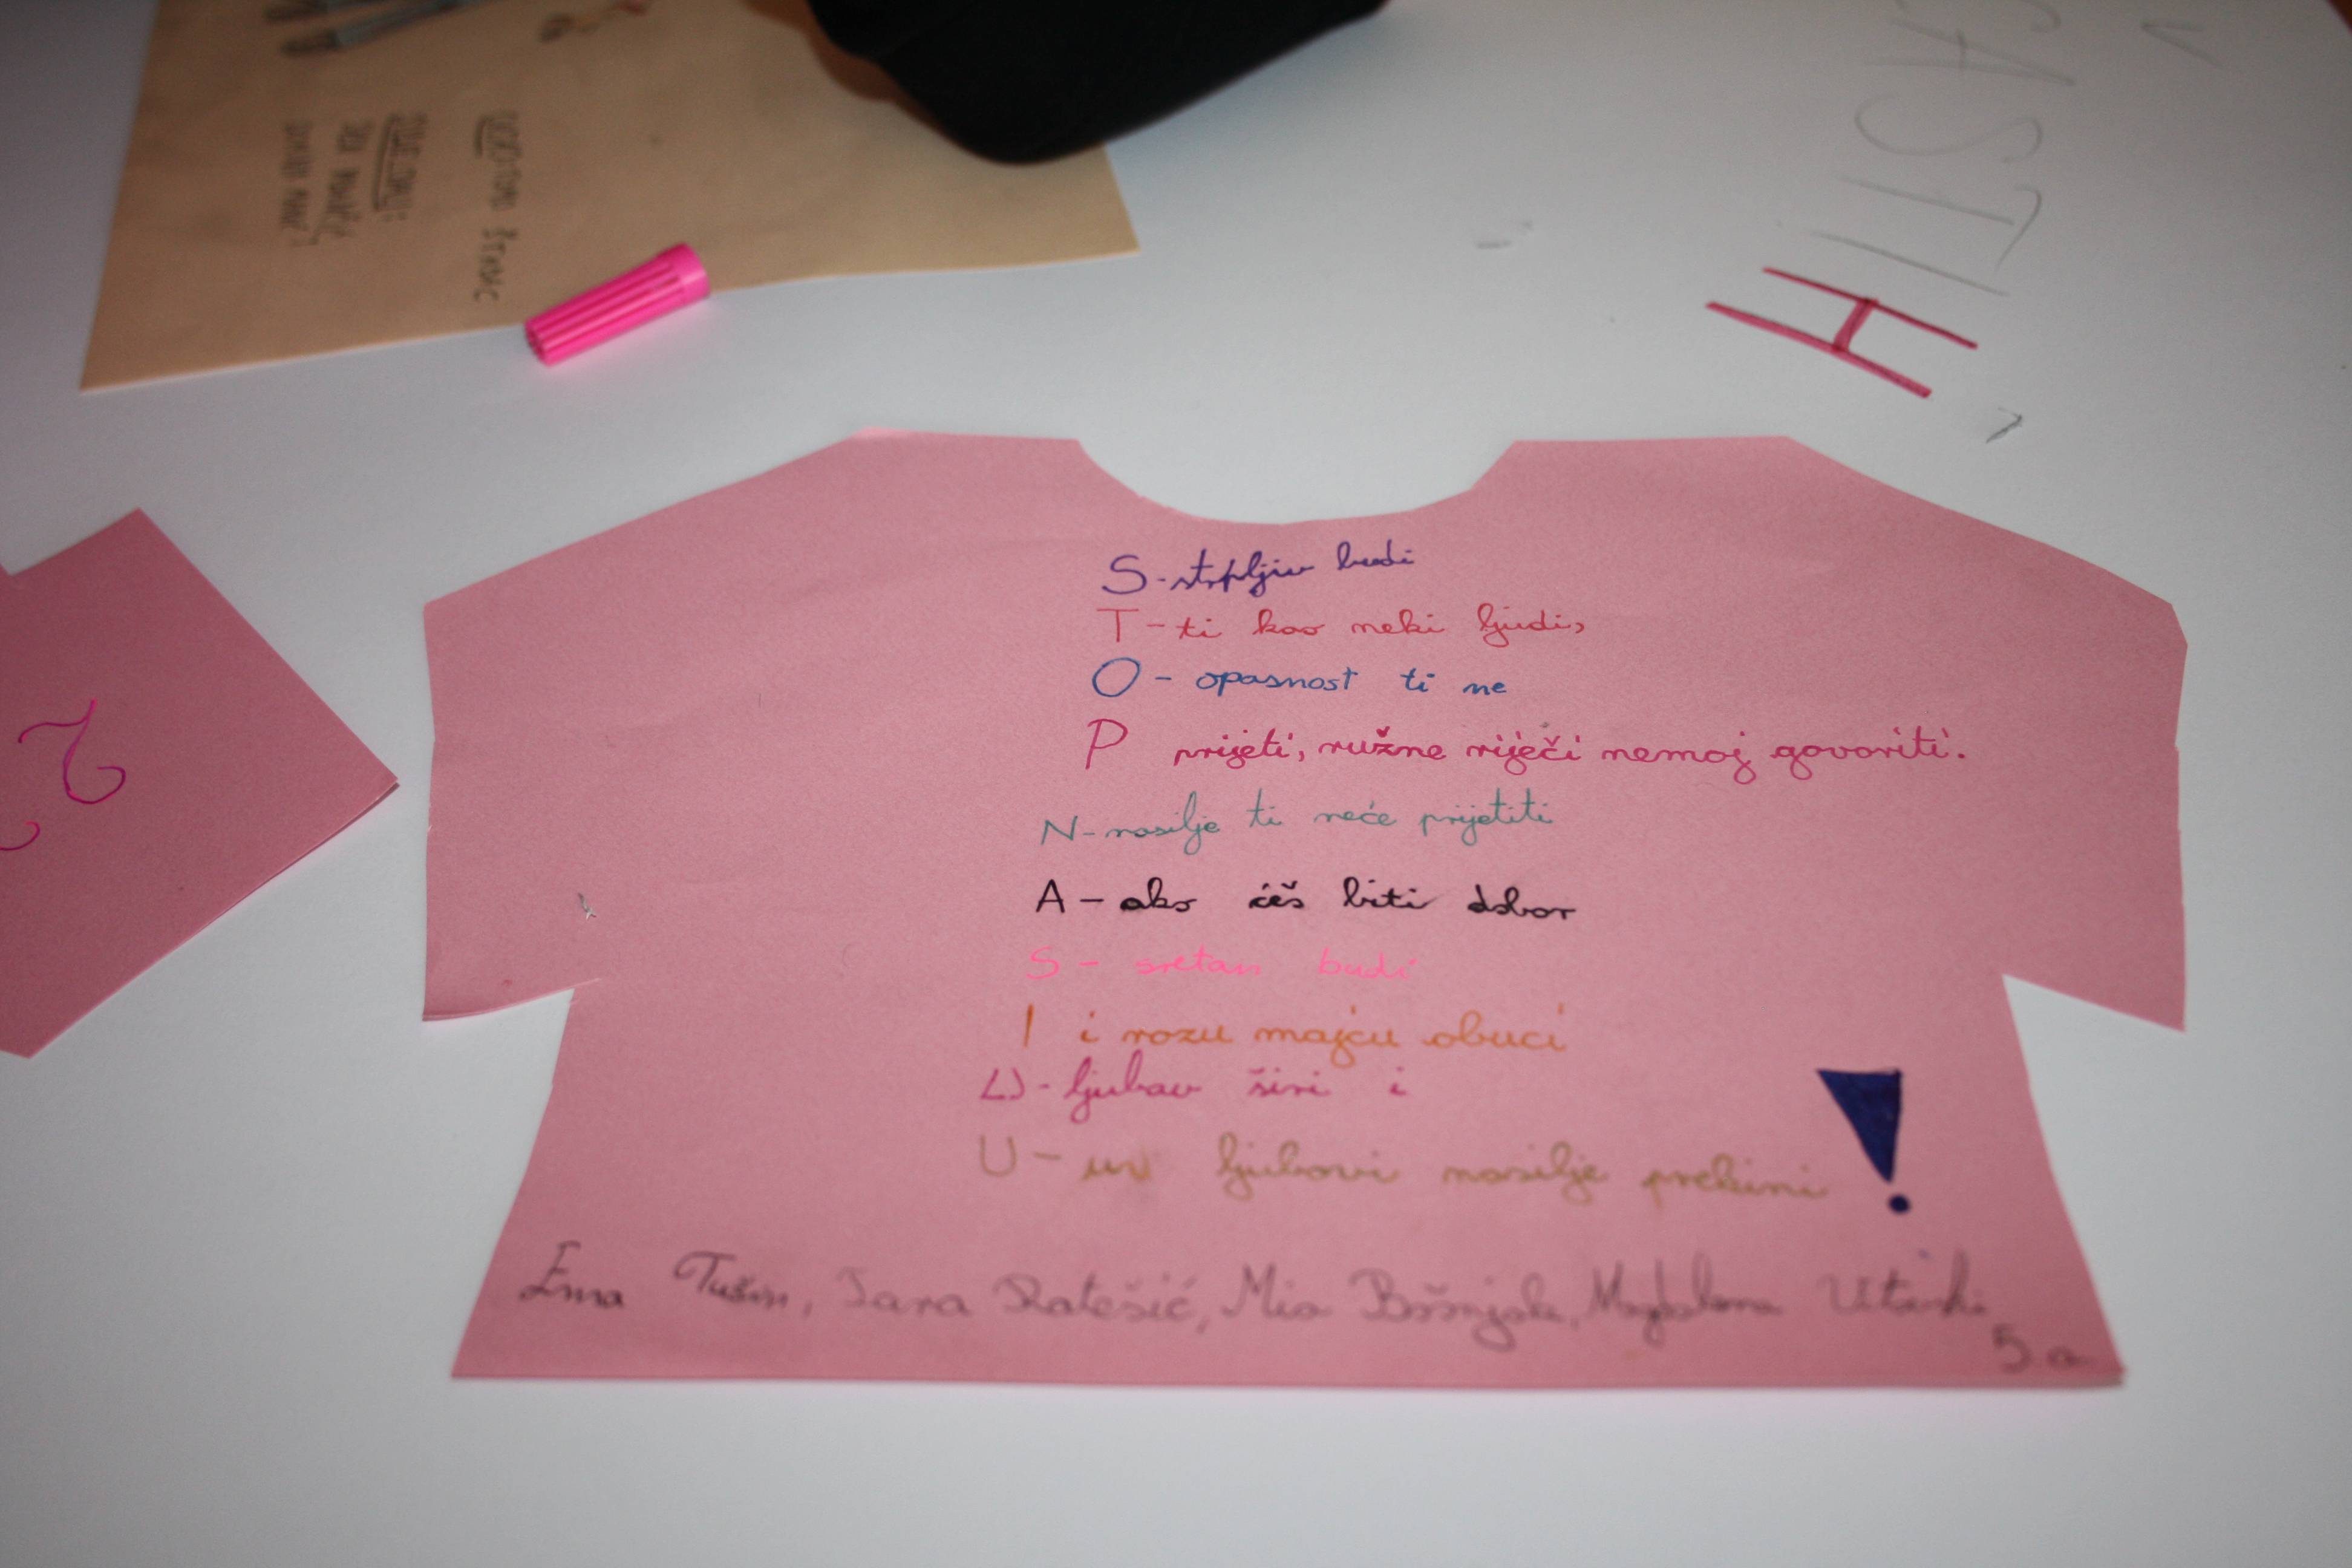 HISTCA
S-strpljiv budi
T-ti kao neki ljudi,
O- opasnost ti ne
P prijeti, ružne riječi nemoj govoriti.
N-nasilje ti neće prijetiti
A- ako ćeš biti dobar
S- sretan budi
I i rozu majcu obuci
LJ-ljubav širi i
U- ljubavi nasilje prekini
!
Ema Tušin, Jana Ratešić, Mia Bošnjak, Magdalena
5.a